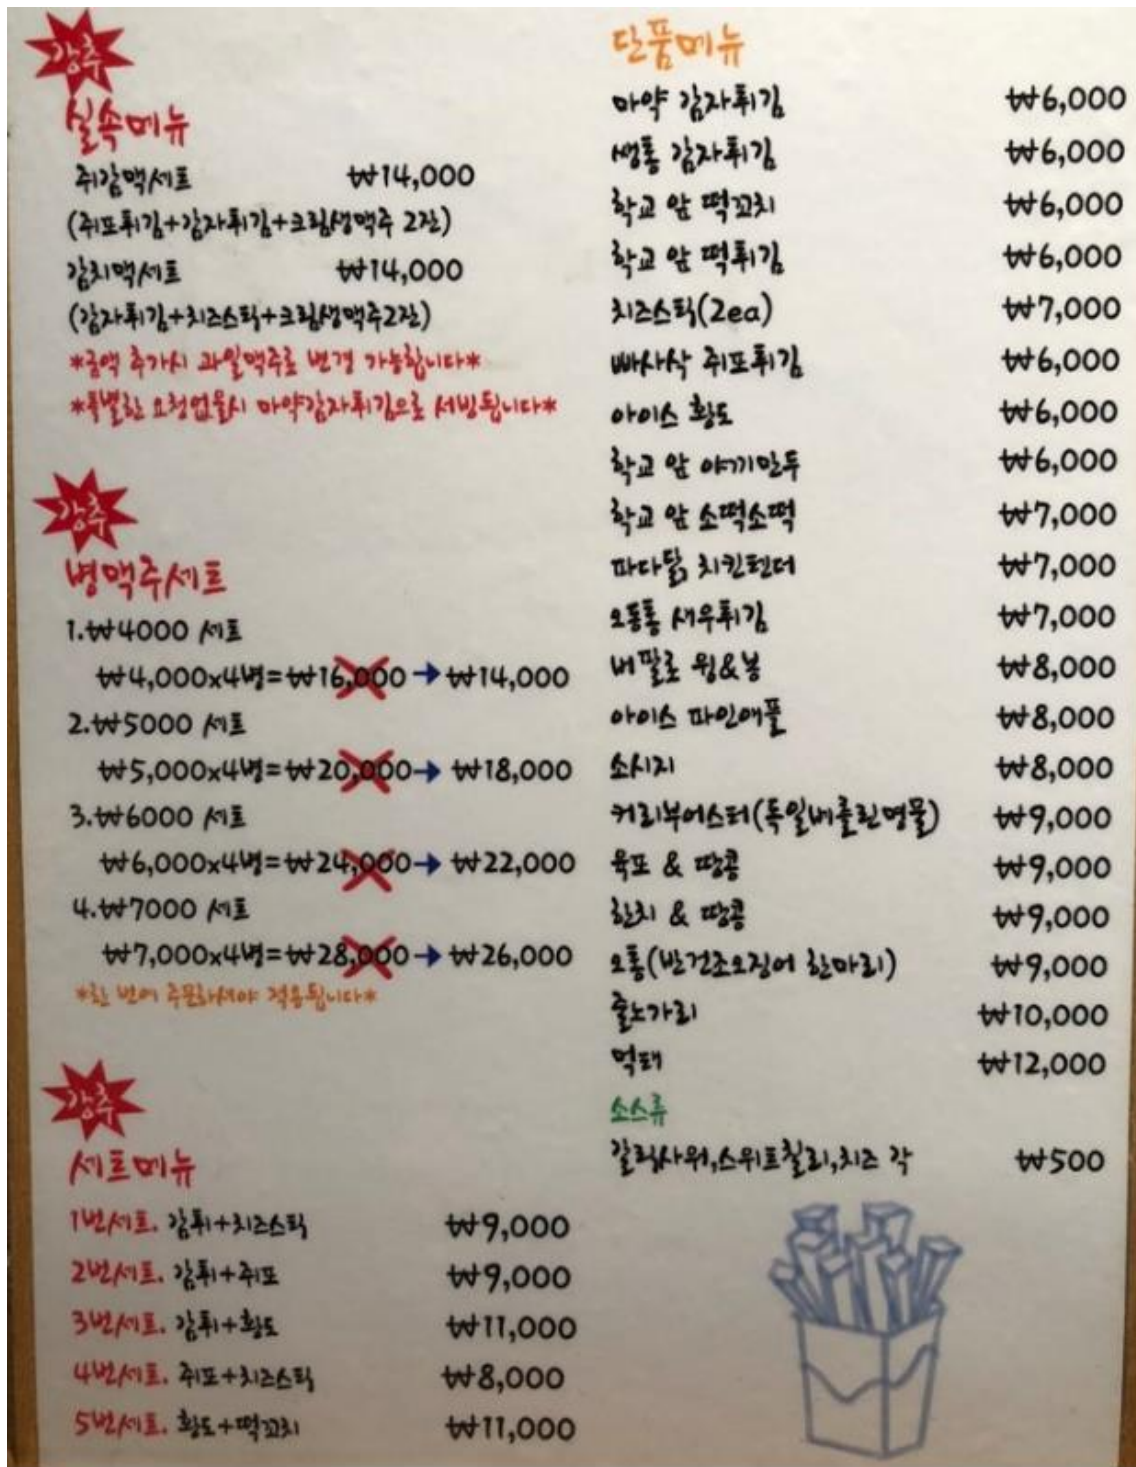 강추
실속메뉴
쥐감맥세트 ₩14,000
(쥐포튀김+감자튀김+크림생맥주 2잔)
감치맥세트 ₩14,000
(감자튀김+치즈스틱+크림생맥주2잔)
*금액 추가시 과일맥주로 변경 가능합니다*
*특별한 요청없을시 마약감자튀김으로 서빙됩니다*
강추
병맥주세트
1.₩4000 세트
₩4,000x4병=₩16,000→₩14,000
2.₩5000 세트
₩5,000x4병=₩20,000→ ₩18,000
3.₩6000 세트
₩6,000x4병=₩24,000→ ₩22,000
4.₩7000 세트
₩7,000x4병=₩28,000→₩26,000
*한 번에 주문하셔야 적용됩니다*
강추
세트메뉴
1번세트. 감튀+치즈스틱 ₩9,000
2번세트. 감튀+쥐포 ₩9,000
3번세트. 감튀+황도 ₩11,000
4번세트. 쥐포+치즈스틱 ₩8,000
5번세트. 황도+떡꼬치 ₩11,000
단품메뉴
마약 감자튀김 ₩6,000
생통 감자튀김 ₩6,000
학교 앞 떡꼬치 ₩6,000
학교 앞 떡튀김 ₩6,000
치즈스틱(2ea) ₩7,000
빠사삭 쥐포튀김 ₩6,000
아이스 황도 ₩6,000
학교 앞 야끼만두 ₩6,000
학교 앞 소떡소떡 ₩7,000
파다닭, 치킨텐더 ₩7,000
오동통 새우튀김 ₩7,000
버팔로 윙&봉 ₩8,000
아이스 파인애플 ₩8,000
소시지 ₩8,000
커리부어스터(독일베를린명물) ₩9,000
육포 & 땅콩 ₩9,000
한치 & 땅콩 ₩9,000
오통(반건조오징어 한마리) ₩9,000
줄노가리 ₩10,000
먹태 ₩12,000
소스류
갈릭사워,스위트칠리,치즈 각 ₩500